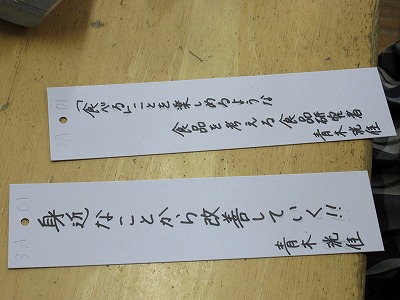 3A 01
「食べる」ことを楽しめるような
食品を考える食品研究者
青木 光佳
3A 01
身近なことから改善していく!!
青木 光佳